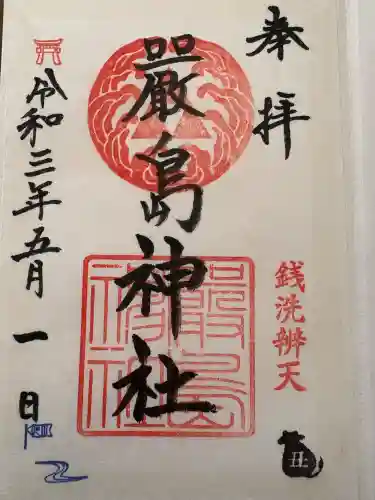 奉拝
銭洗辨天
丑
嚴島神社
嚴島
神社
令和三年五月一日